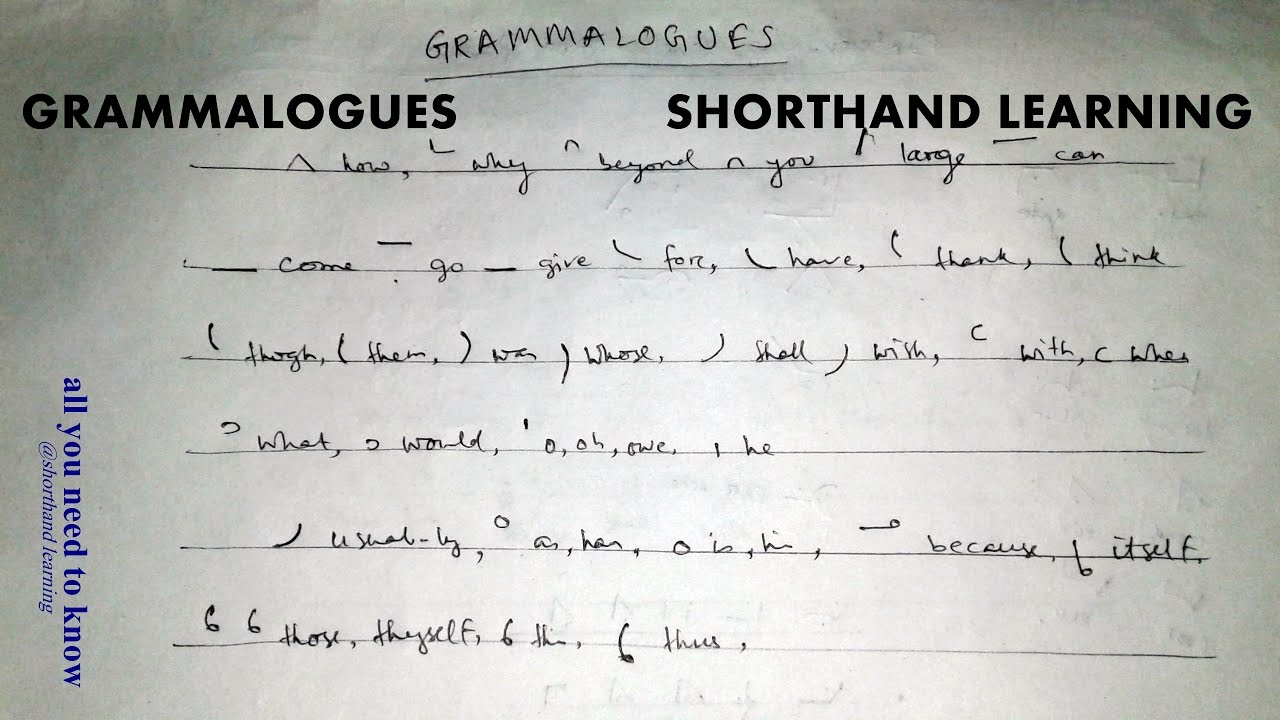 GRAMMALOGUES
GRAMMALOGUES SHORTHAND LEARNING
how, why beyond you large can
come go give for, have, thank, think
thogh, them, was whose, shall wish, with, when
what, would, o, oh, owe, he
usual-ly, as, has, is, his, because, itself,
those, thyself, this, thus,
all you need to know
@shorthand learning